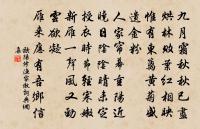 九月霜秋秋已盡
烘林敗葉紅相映
惟有東籬黃菊盛
遺金粉
人家簾幕重陽近
曉日陰陰晴未定
授衣時節輕寒嫩
新雁一聲風又勁
雲欲凝
雁來應有吾鄉信
歐陽修漁家傲詞典網